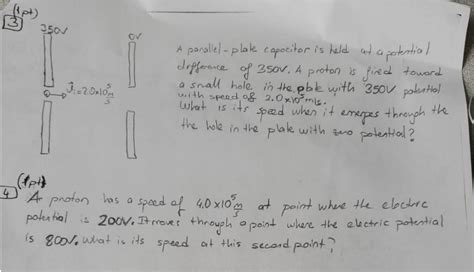 (1pt)
3
350V
0V
v₁=2.0x10⁵ m/s
A parallel-plate capacitor is held at a potential
difference of 350V. A proton is fired toward
a small hole in the plate with 350V potential
with speed of 2.0x10⁵ m/s.
What is its speed when it emerges through the
the hole in the plate with zero potential?
(1pt)
4
A proton has a speed of 4.0x10⁵ m/s at point where the electric
potential is 200V. It moves through a point where the electric potential
is 800V. What is its speed at this second point?